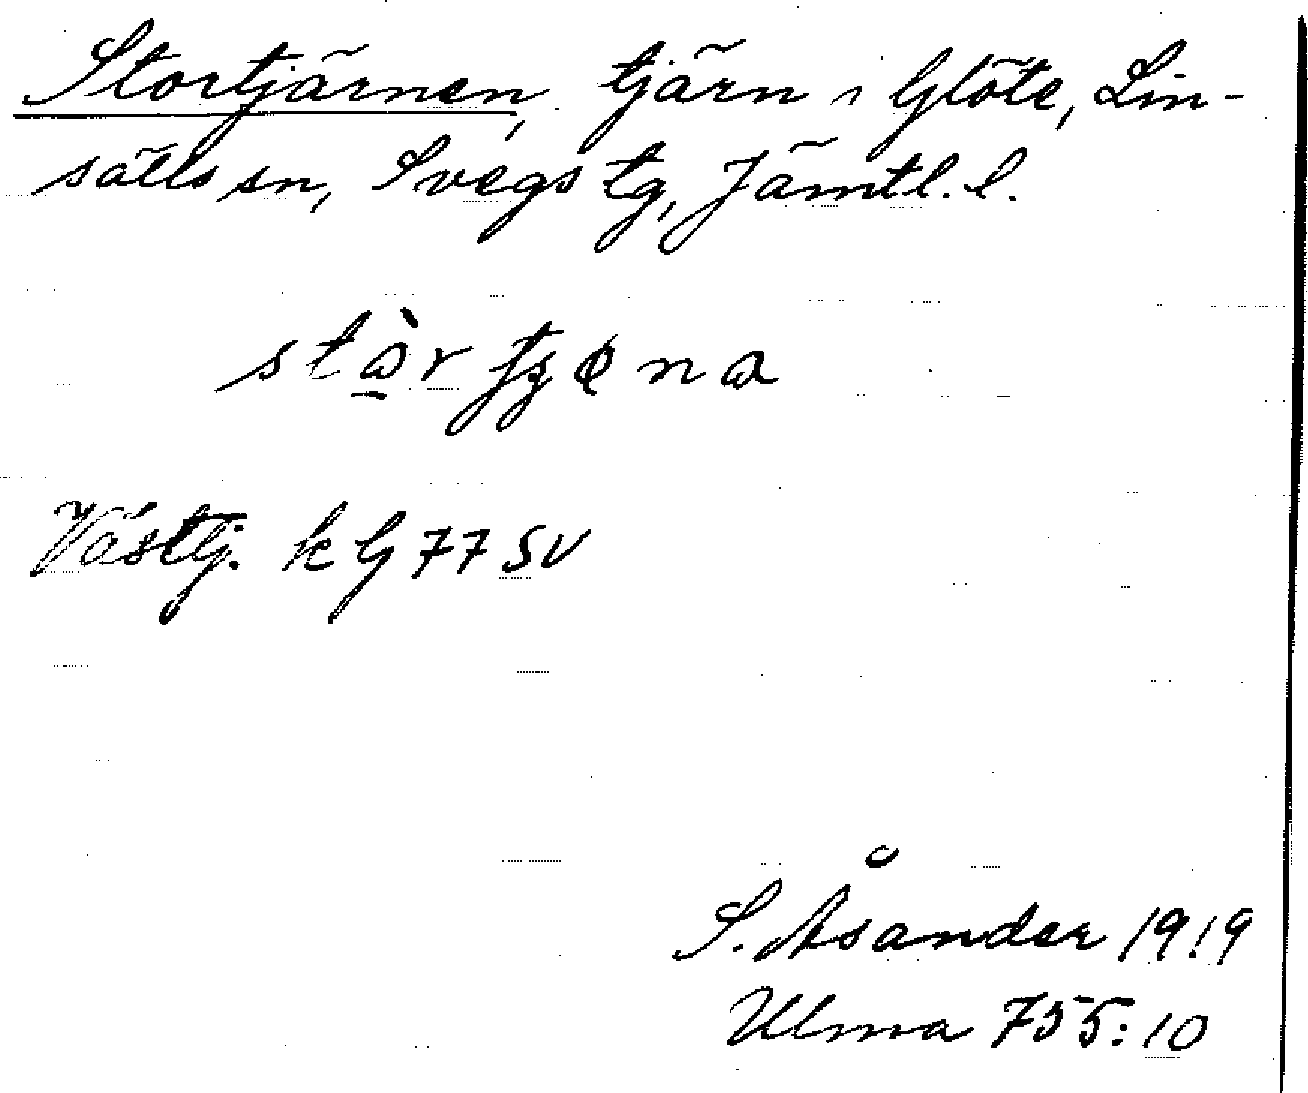 Stortjärnen, tjärn i Glöte, Lin-
sälls sn, Svegs tg, Jämtl. l.
Västlj. k G 77 SV
S. Åsander 1919
Ulma 755:10